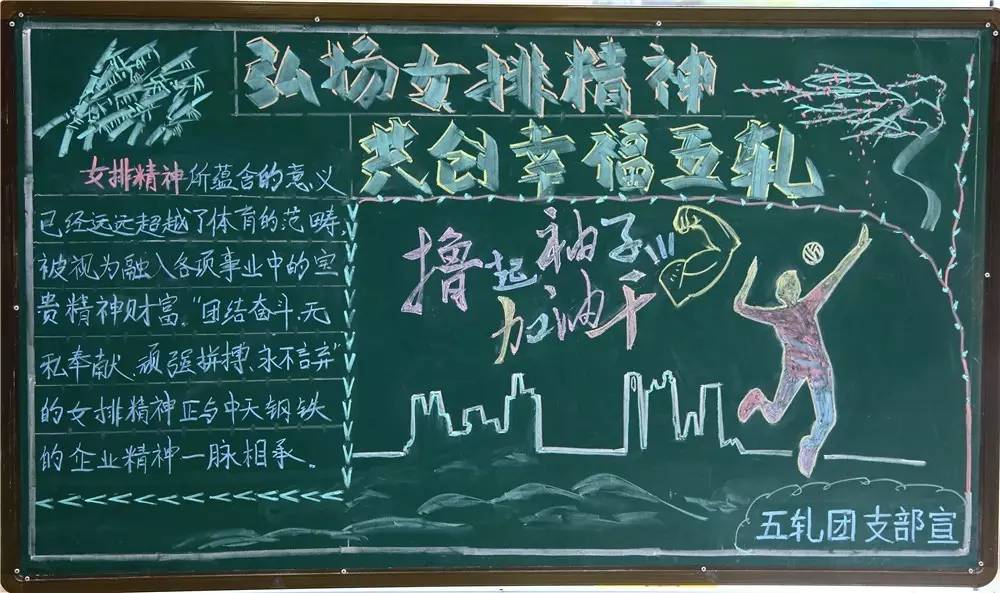 弘扬女排精神
共创幸福五轧
女排精神所蕴含的意义
已经远远超越了体育的范畴,
被视为融入各项事业中的宝
贵精神财富。“团结奋斗、无
私奉献、顽强拼搏、永不言弃”
的女排精神正与中天钢铁
的企业精神一脉相承。
撸起袖子!!!
加油干
五轧团支部宣